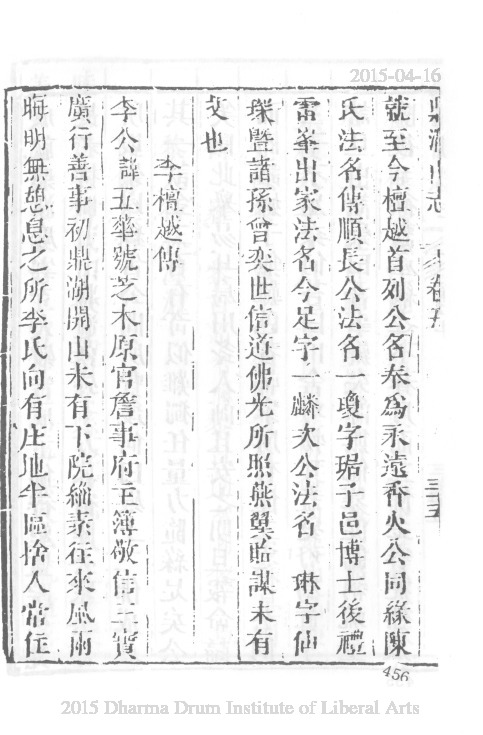 2015-04-16
鼎湖山志 卷五 三五
號至今檀越首列公名奉為永遠香火公同緣陳
氏法名傳順長公法名一瓊字琚子邑博士後禮
雷峯出家法名今足字一麟次公法名 琳字仙
璞暨諸孫曾奕世信道佛光所照燕翼貽謀未有
艾也
李檀越傳
李公諱五華號芝木原官詹事府主簿敬信三寶
廣行善事初鼎湖開山未有下院緇素往來風雨
晦明無憩息之所李氏向有庄地半區捨入常住
456
2015 Dharma Drum Institute of Liberal Arts